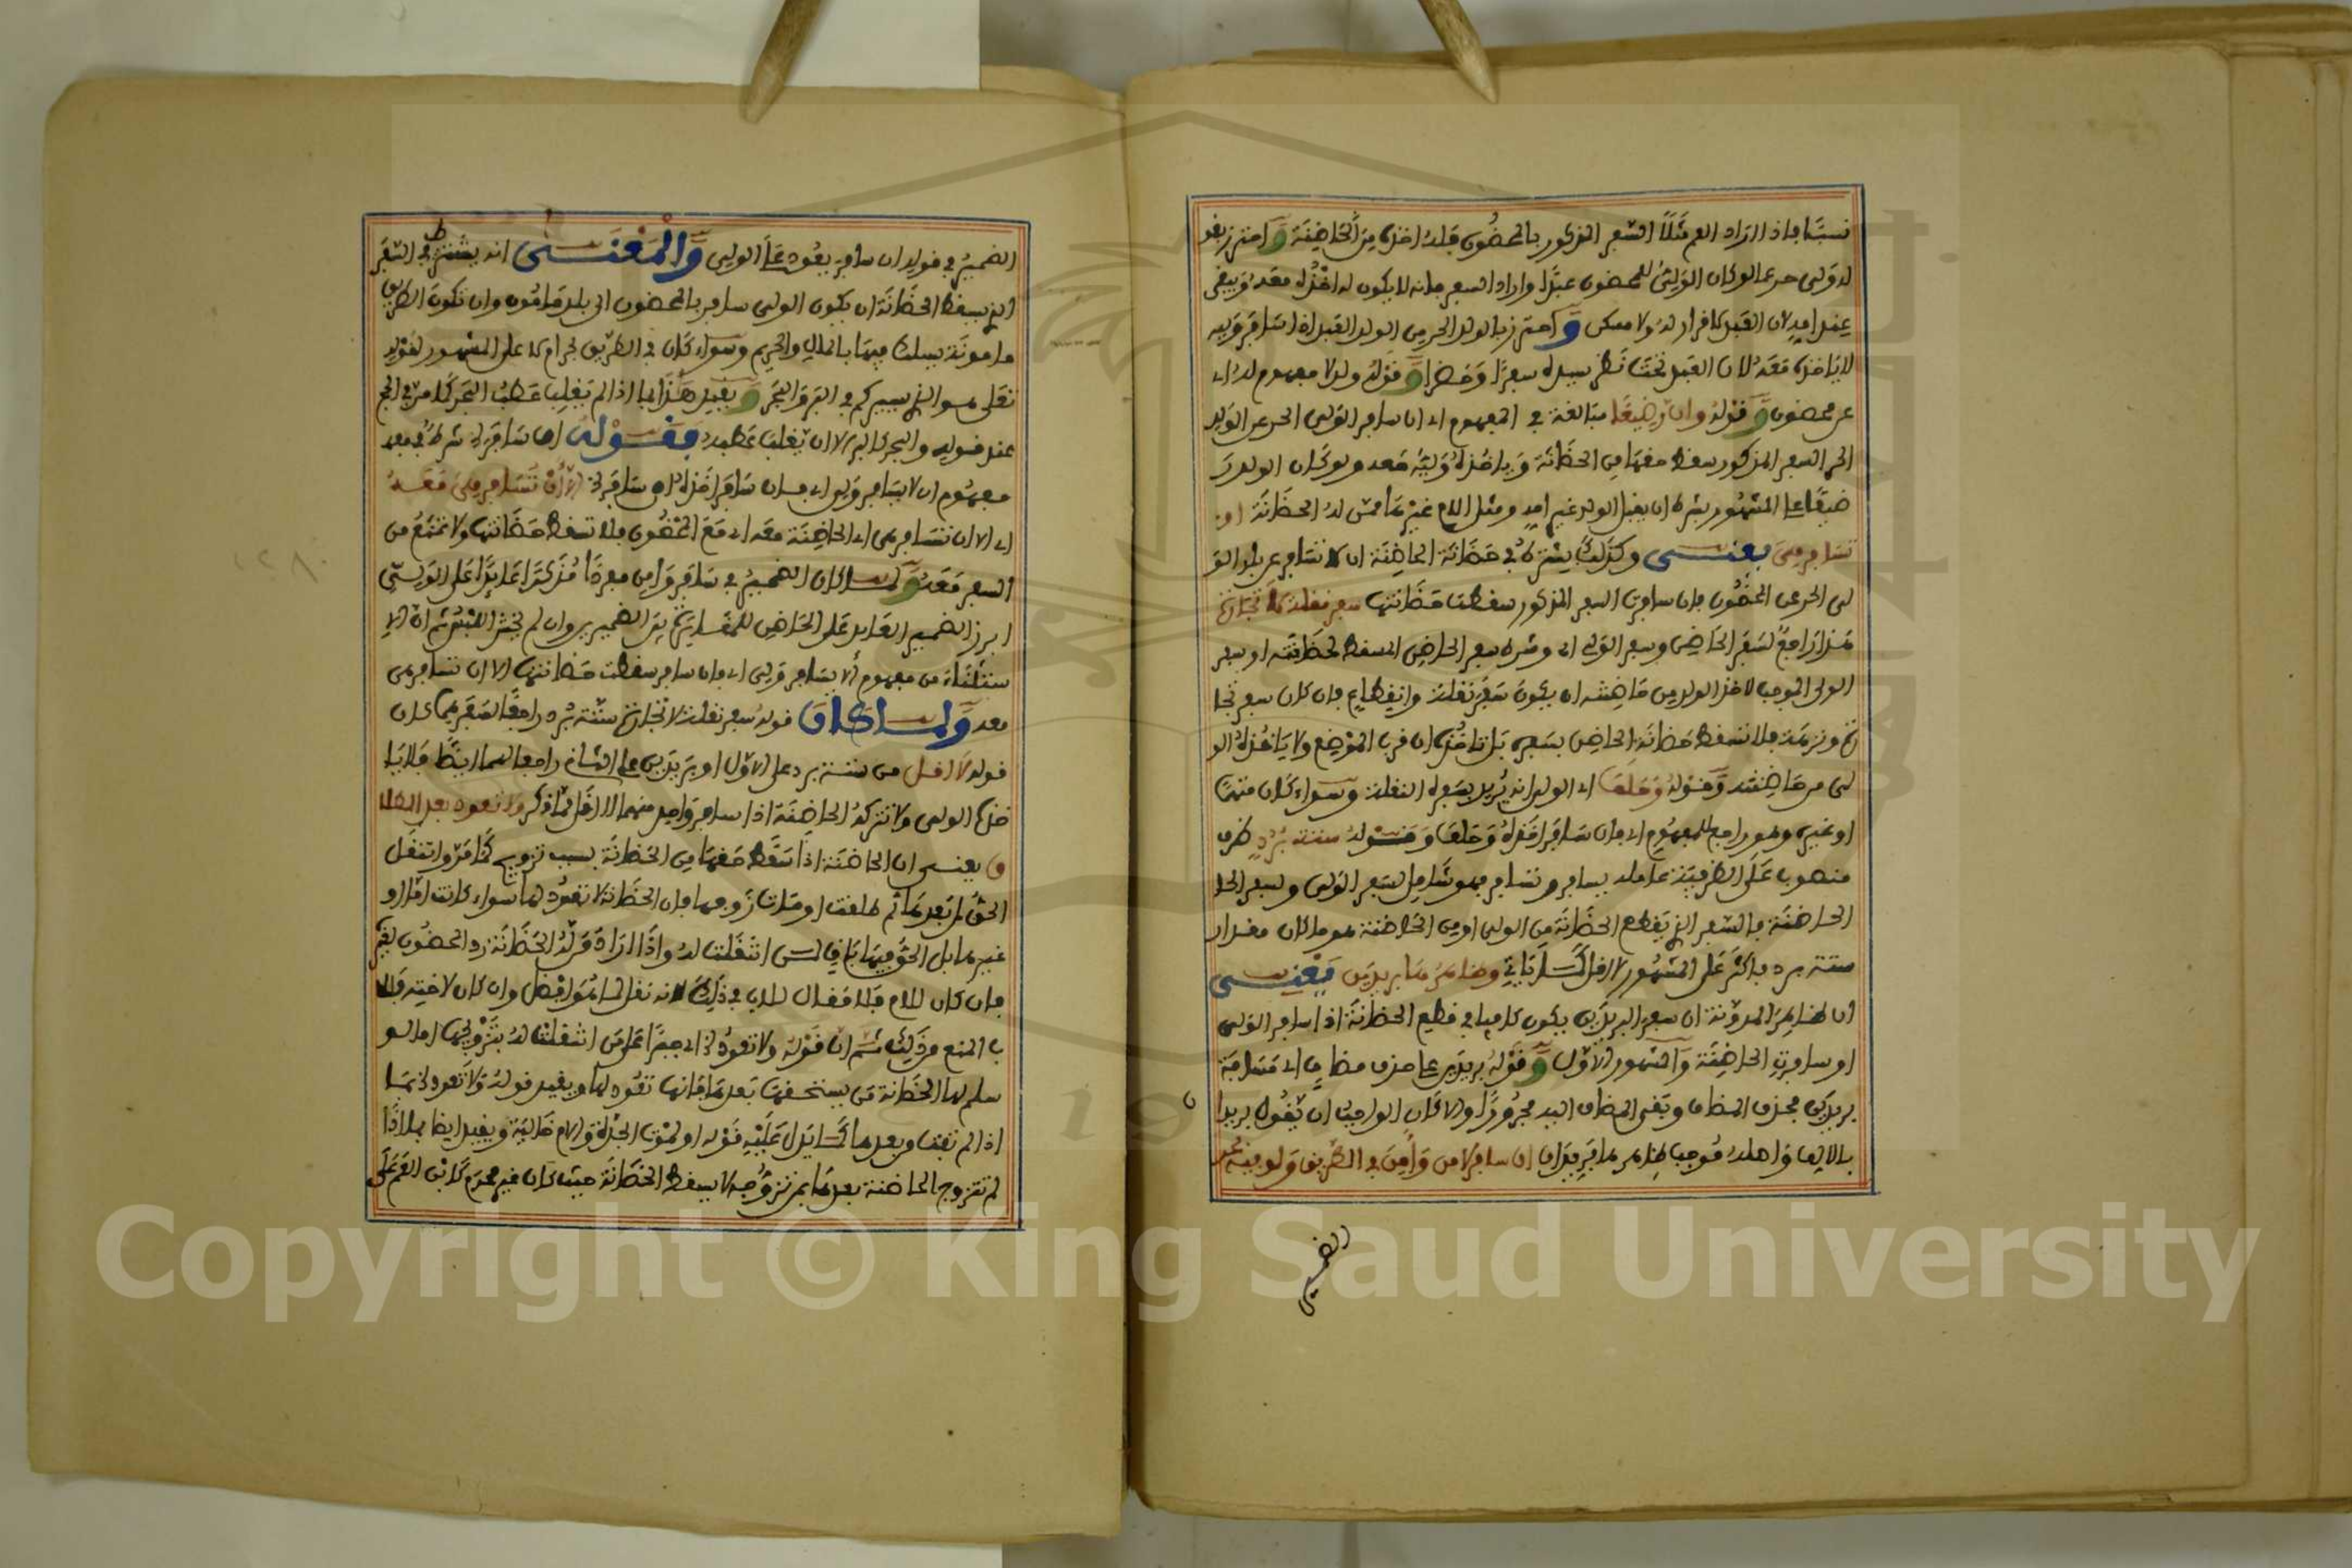 نسبا فاذا اراد العم مثلا السفر المذكور بالمحضون فله اخذه من الحاضنة واحترز بقو
له ولي حر عما لو كان الولي للمحضون عبدا واراد السفر فانه لا يكون له اخذه معه ويبقى
عند امه لان العبد لا قرار له ولا مسكن واحترز بالولد الحر من الولد العبد اذا سافر وليه
لا ياخذه معه لان العبد تحت نظر سيده سفرا وحضرا وقوله ولد لا مفهوم له اي
عن محضون وقوله وان رضيعا مبالغة في المفهوم اي ان سافر الولي الحر عن الولد
الحر السفر المذكور سقط حقها من الحضانة وياخذه وليه معه ولو كان الولد ر
ضيعا على المشهور بشرط ان يقبل الولد غير امه ومثل الام غيرها ممن له الحضانة او
تسافر هي يعني وكذلك يشترط في حضانة الحاضنة ان لا تسافر عن بلد الو
لي الحر عن المحضون فان سافرت السفر المذكور سقطت حضانتها سفر نقلة لا تجارة
هذا راجع لسفر الحاضن وسفر الولي اي وشرط سفر الحاضن المسقط لحضانته او سفر
الولي الموجب لاخذ الولد من حاضنته ان يكون سفر نقلة وانقطاع فان كان سفر تجا
رة ونزهة فلا تسقط حضانة الحاضن بسفره بل تاخذه ان قرب الموضع ولا ياخذه الو
لي من حاضنته وقوله وحلف اي الولي انه يريد بسفره النقلة وسواء كان متهما
او غيره وهو راجع للمفهوم اي فان سافر اخذه وحلف وقوله ستة برد ظرف
منصوب على الظرفية عامله يسافر وتسافر فهو شامل لسفر الولي ولسفر الحا
الحاضنة فالسفر الذي يقطع الحضانة من الولي او من الحاضنة هو ما كان مقدار
ستة برد فاكثر على المشهور لا اقل كما ياتي وظاهرها بريدين يعني
ان ظاهر المدونة ان سفر البريدين يكون كافيا في قطع الحضانة اذا سافر الولي
او سافرت الحاضنة والمشهور الاول وقوله بريدين على حذف مضاف اي مسافة
بريدين فحذف المضاف وبقي المضاف اليه مجرورا والا كان الواجب ان يقول بريدا
بالالف اهله فوجب ظاهرها بريدان ان سافر لامن وامن في الطريق ولو فيه بحر
الضمير
الضمير في قوله ان سافر يعود على الولي والمعنى انه يشترط في السفر
الذي يسقط الحضانة ان يكون الولي سافر بالمحضون الى بلد مامون وان تكون الطريق
مامونة يسلك فيها بالمال والحريم وسواء كان في الطريق بحر ام لا على المشهور لقوله
تعلى هو الذي يسيركم في البر والبحر ويقيد هذا بما اذا لم يغلب عطب البحر كما مر في الحج
عند قوله والبحر كالبر الا ان يغلب عطبه فقوله ان سافر الى شرط في
مفهوم ان لا يسافر ولي اي فان سافر اخذه ان سافر الا ان تسافر هي معه
اي الا ان تسافر هي اي الحاضنة معه اي مع المحضون فلا تسقط حضانتها ولا تمنع من
السفر معه ولما كان الضمير في سافر وامن مفردا مذكرا عائدا على الولي
ابرز الضمير العائد على الحاضن للمغايرة بين الضميرين وان لم يخش اللبس ثم ان الا
ستثناء من مفهوم لا يسافر ولي اي فان سافر سقطت حضانتها الا ان تسافر هي
معه ولما كان قوله سفر نقلة لا تجارة ستة برد راجعا لسفرهما كان
قوله لا اقل من ستة برد على الاول او بريدين على الثاني راجعا لهما ايضا فلا يا
خذه الولي ولا تتركه الحاضنة اذا سافر واحد منهما الا اقل مما ذكر ولا تعود بعد الطلا
ق يعني ان الحاضنة اذا سقط حقها من الحضانة بسبب تزويج كما مر وانتقل
الحق لمن بعدها ثم طلقت او مات زوجها فان الحضانة لا تعود لها سواء كانت اما او
غيرها بل الحق فيها باق لمن انتقلت له واذا اراد من له الحضانة رد المحضون لغيره
فان كان للام فلا مقال للاب في ذلك لانه نقل لما هو افضل وان كان لاخته فللا
ب المنع من ذلك ثم ان قوله ولا تعود اي جبرا على من انتقلت له بتزويجها اما لو
سلم لها الحضانة من يستحقها بعدها فانها تعود لها ويقيد قوله ولا تعود بما
اذا لم تمت من بعدها كما يدل عليه قوله او لموت الجدة والام خالية ويقيد ايضا بما اذا
لم تتزوج الحاضنة بعدها بمن تزوجه لا يسقط الحضانة حيث كان غير محرم كابن العم على
١٢٨
Copyright © King Saud University